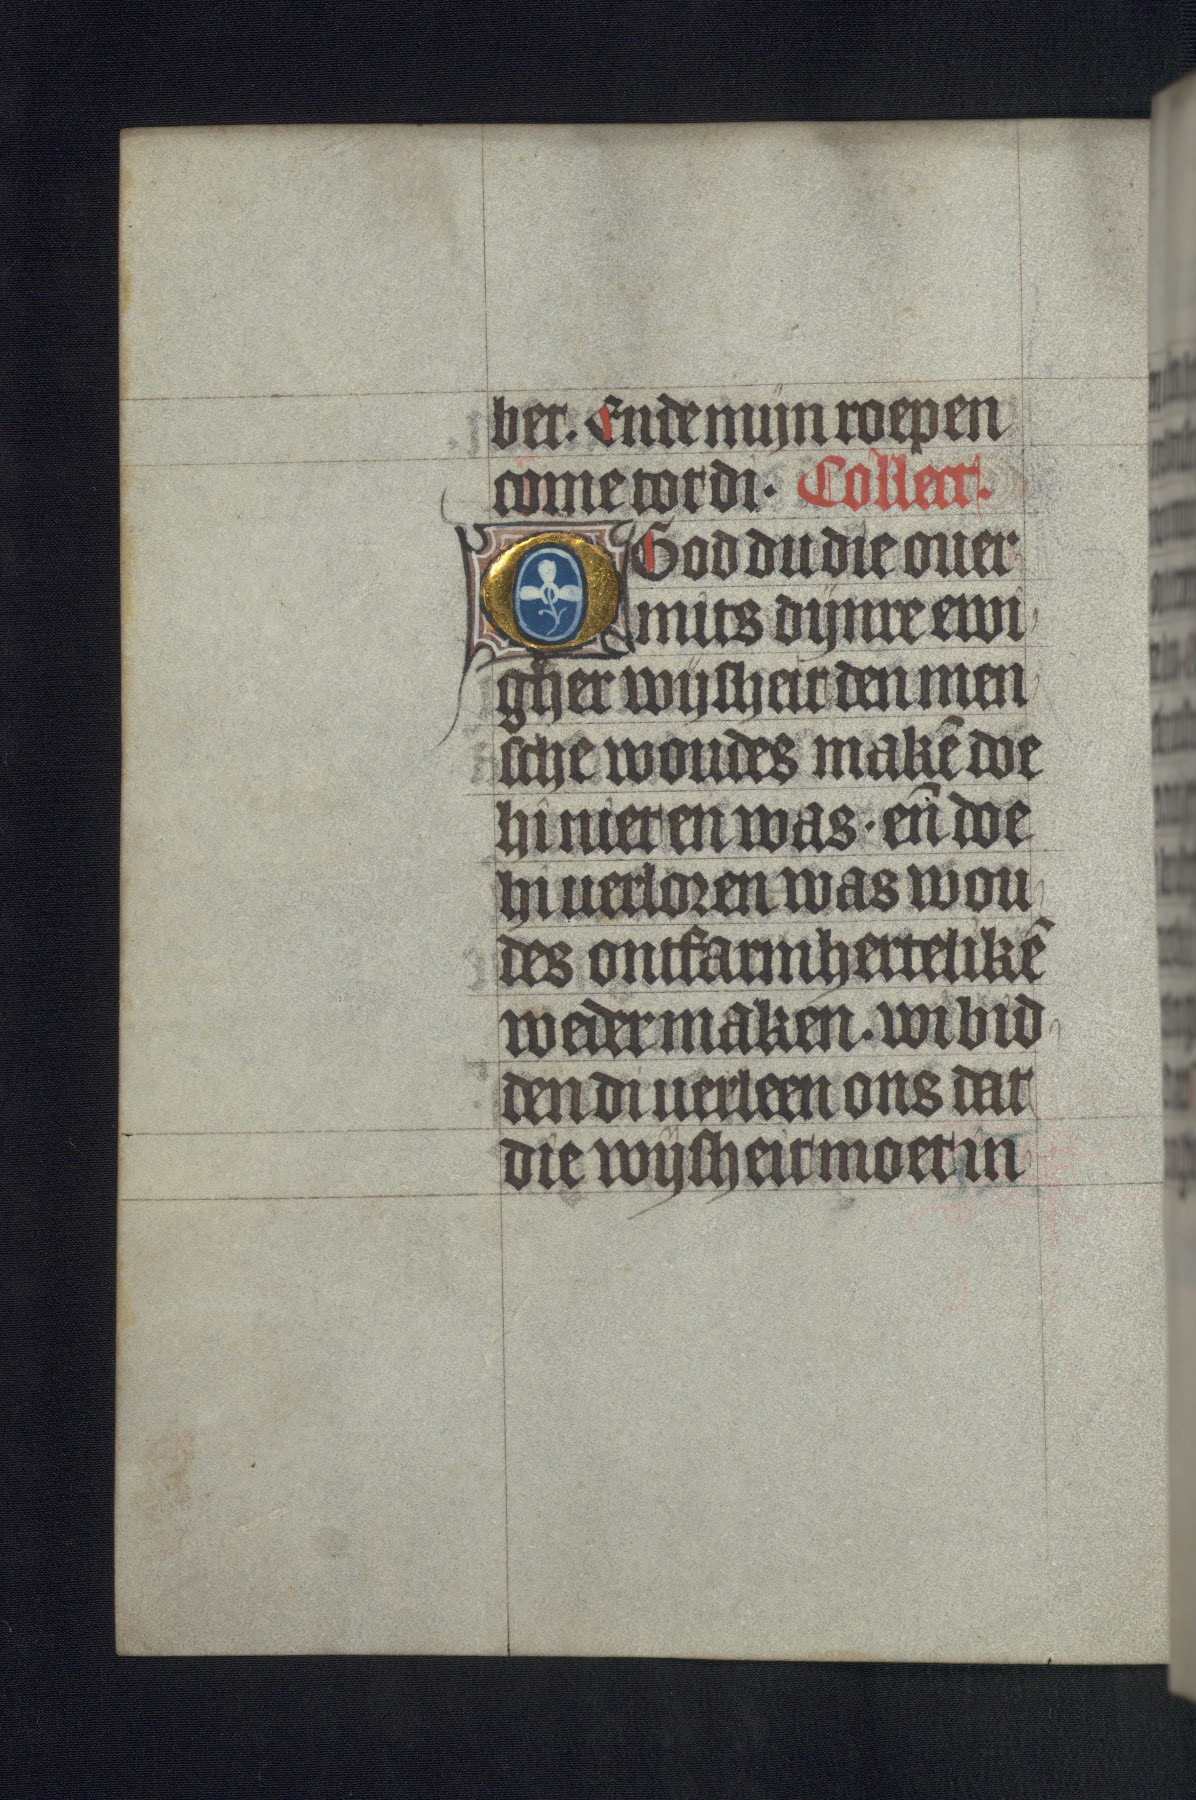 bet. Ende mijn roepen
come tot di. Collect.
O God du die ouer
mits dijnre ewi
gher wijsheit den men
sche woudes makē doe
hi niet en was. eñ doe
hi uerloren was wou
des ontfarmhertelikē
weder maken. wi bid
den di uerleen ons dat
die wijsheit moet in